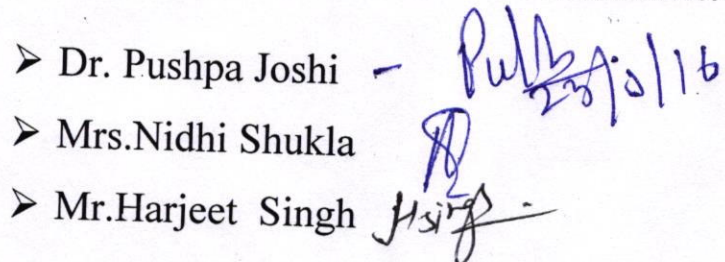 ➢ Dr. Pushpa Joshi -
➢ Mrs.Nidhi Shukla
➢ Mr.Harjeet Singh Hsingh